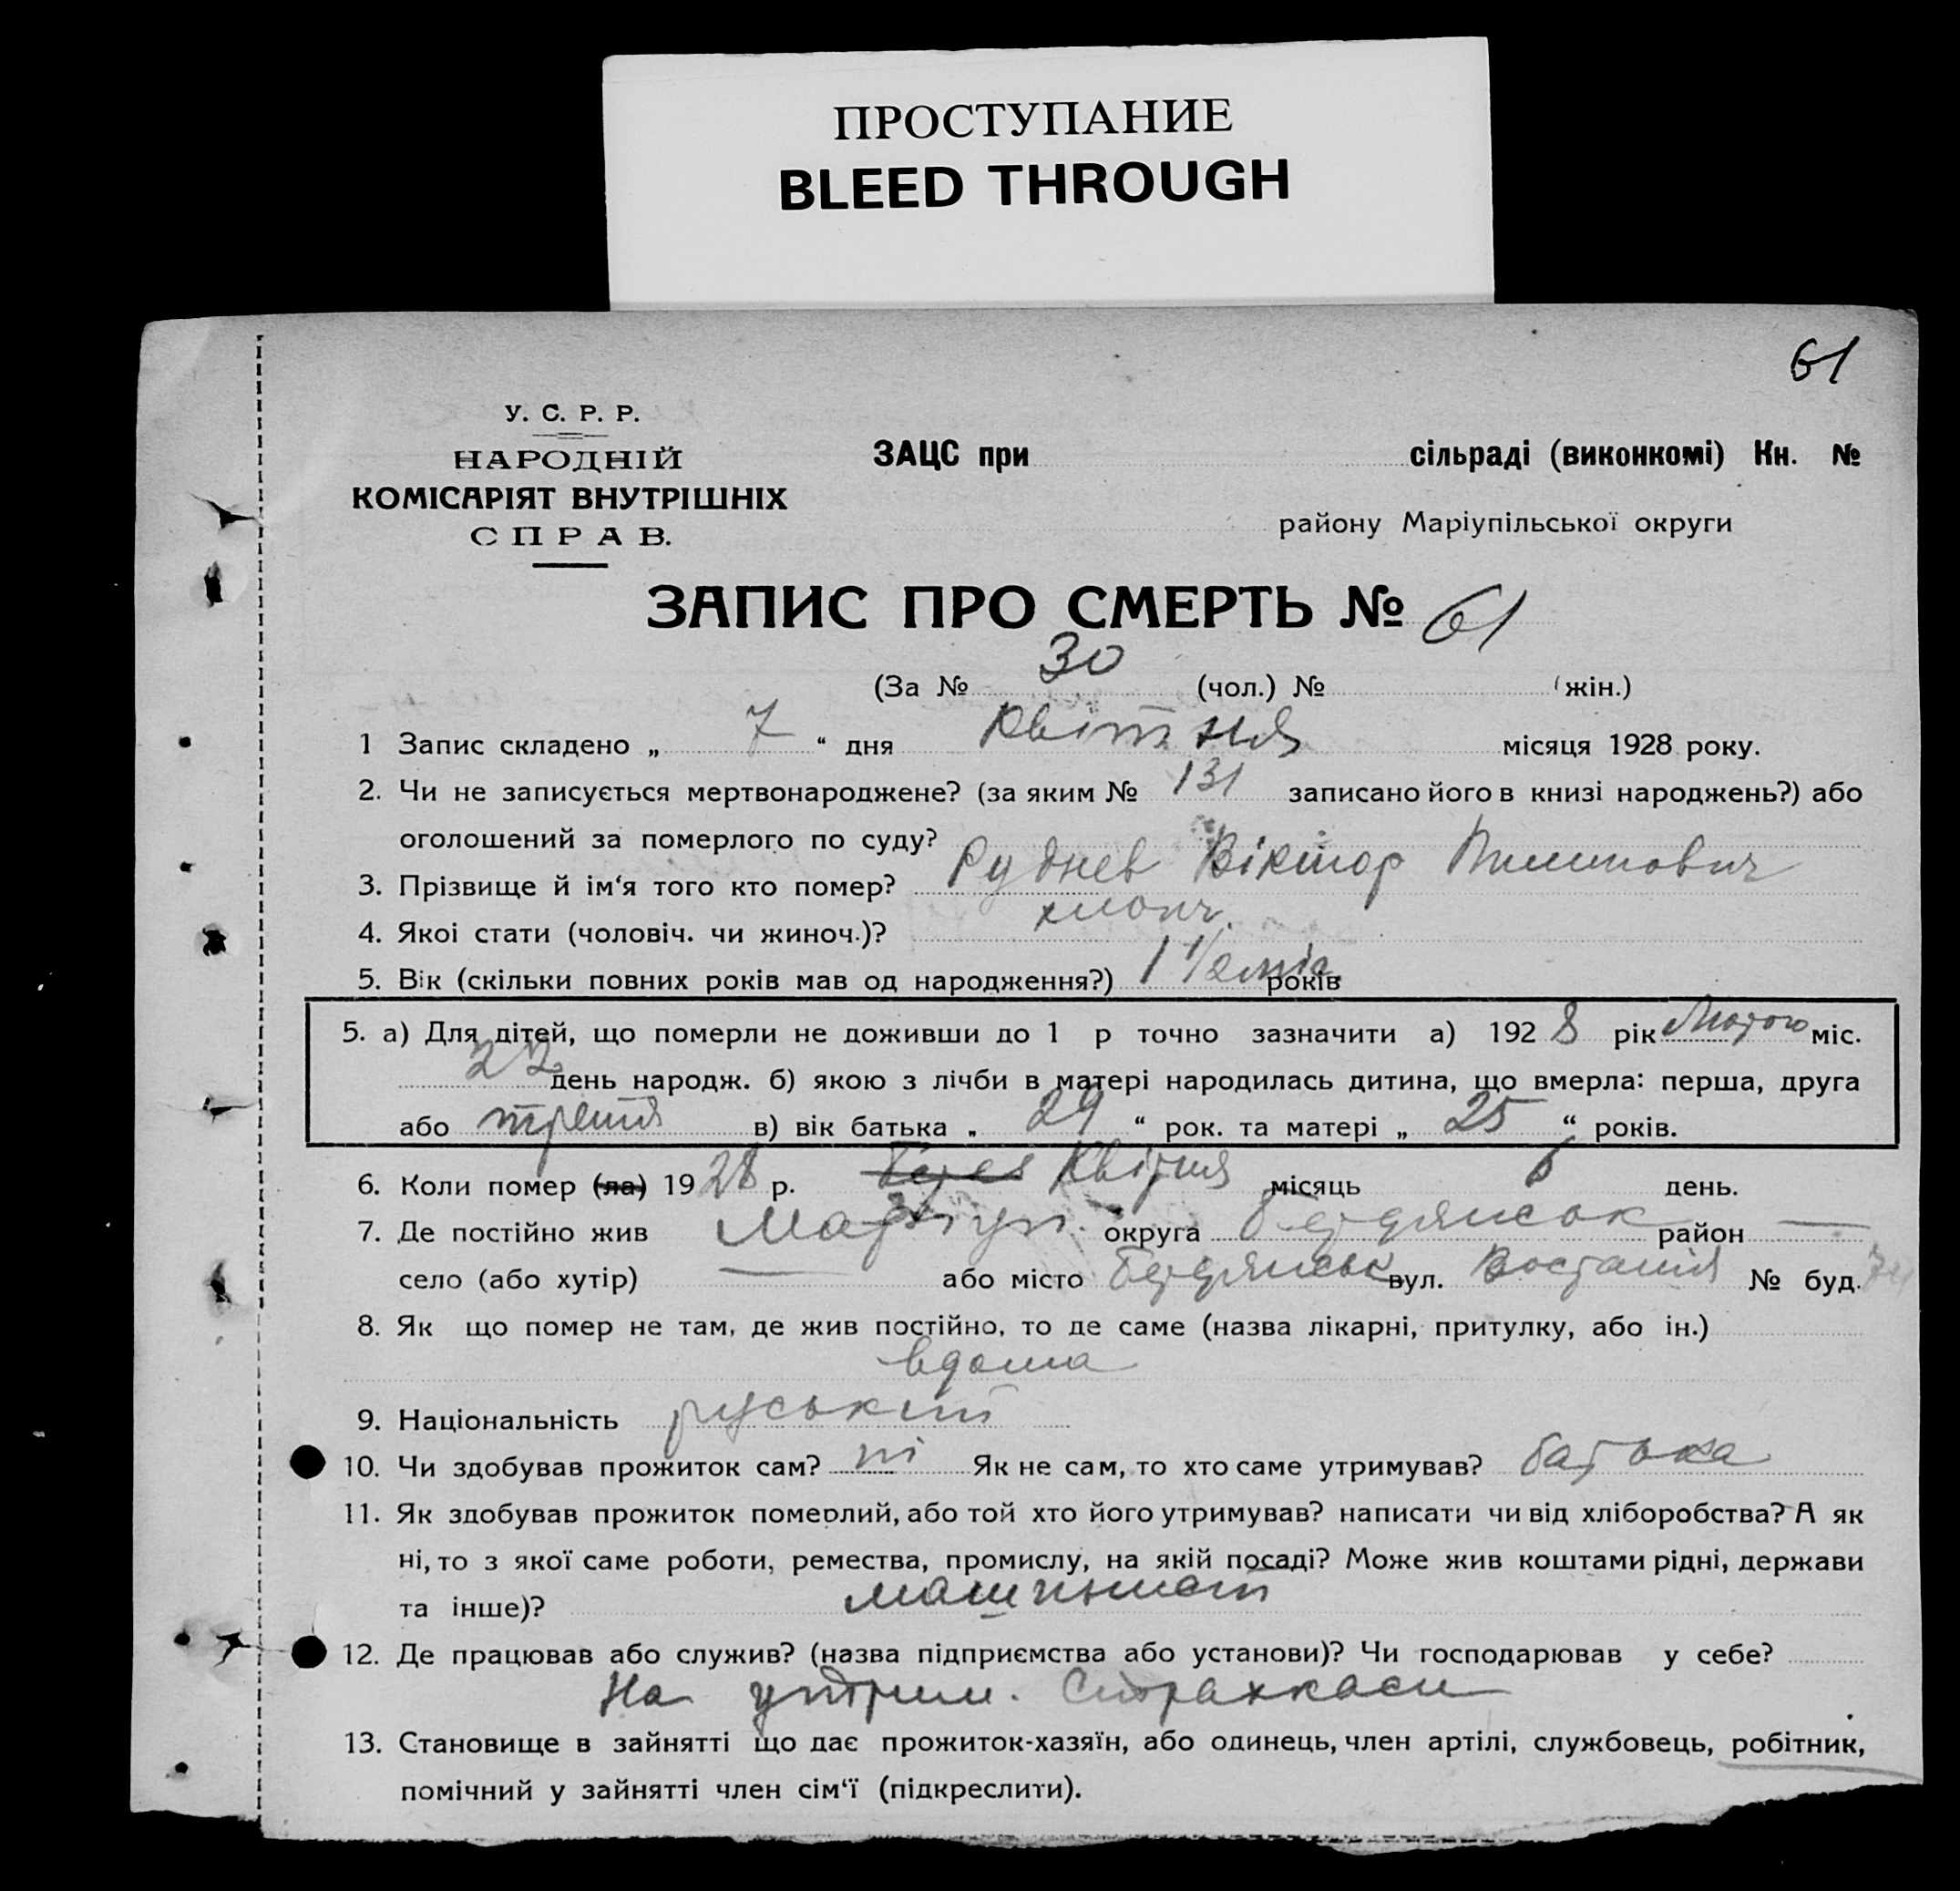 ПРОСТУПАНИЕ
BLEED THROUGH
61
У. С. Р. Р.
НАРОДНІЙ
КОМІСАРІЯТ ВНУТРІШНІХ
СПРАВ.
ЗАЦС при сільраді (виконкомі) Кн. №
району Маріупільської округи
ЗАПИС ПРО СМЕРТЬ № 61
(За № 30 (чол.) № (жін.)
1 Запис складено „ 7 “ дня Квітня місяця 1928 року.
2. Чи не записується мертвонароджене? (за яким № 131 записано його в книзі народжень?) або
оголошений за померлого по суду?
3. Прізвище й ім‘я того кто помер? Руднев Віктор Пилипович
4. Якоі стати (чоловіч. чи жиноч.)? хлопч.
5. Вік (скільки повних років мав од народження?) 1 1/2 міс років
5. а) Для дітей, що померли не доживши до 1 р точно зазначити а) 1928 рік Лютого міс.
22 день народж. б) якою з лічби в матері народилась дитина, що вмерла: перша, друга
або третя в) вік батька „ 29 “ рок. та матері „ 25 “ років.
6. Коли помер (ла) 1928 р. Квітня місяць 6 день.
7. Де постійно жив Маріуп. округа Бердянськ район —
село (або хутір) — або місто Бердянськ вул. Востания № буд.
8. Як що помер не там, де жив постійно, то де саме (назва лікарні, притулку, або ін.)
вдома
9. Національність руський
10. Чи здобував прожиток сам? ні Як не сам, то хто саме утримував? батька
11. Як здобував прожиток померлий, або той хто його утримував? написати чи від хліборобства? А як
ні, то з якої саме роботи, ремества, промислу, на якій посаді? Може жив коштами рідні, держави
та інше)? машиніст
12. Де працював або служив? (назва підприємства або установи)? Чи господарював у себе?
На утрим. Страхкаси
13. Становище в зайнятті що дає прожиток-хазяїн, або одинець, член артілі, службовець, робітник,
помічний у зайнятті член сім‘ї (підкреслити).